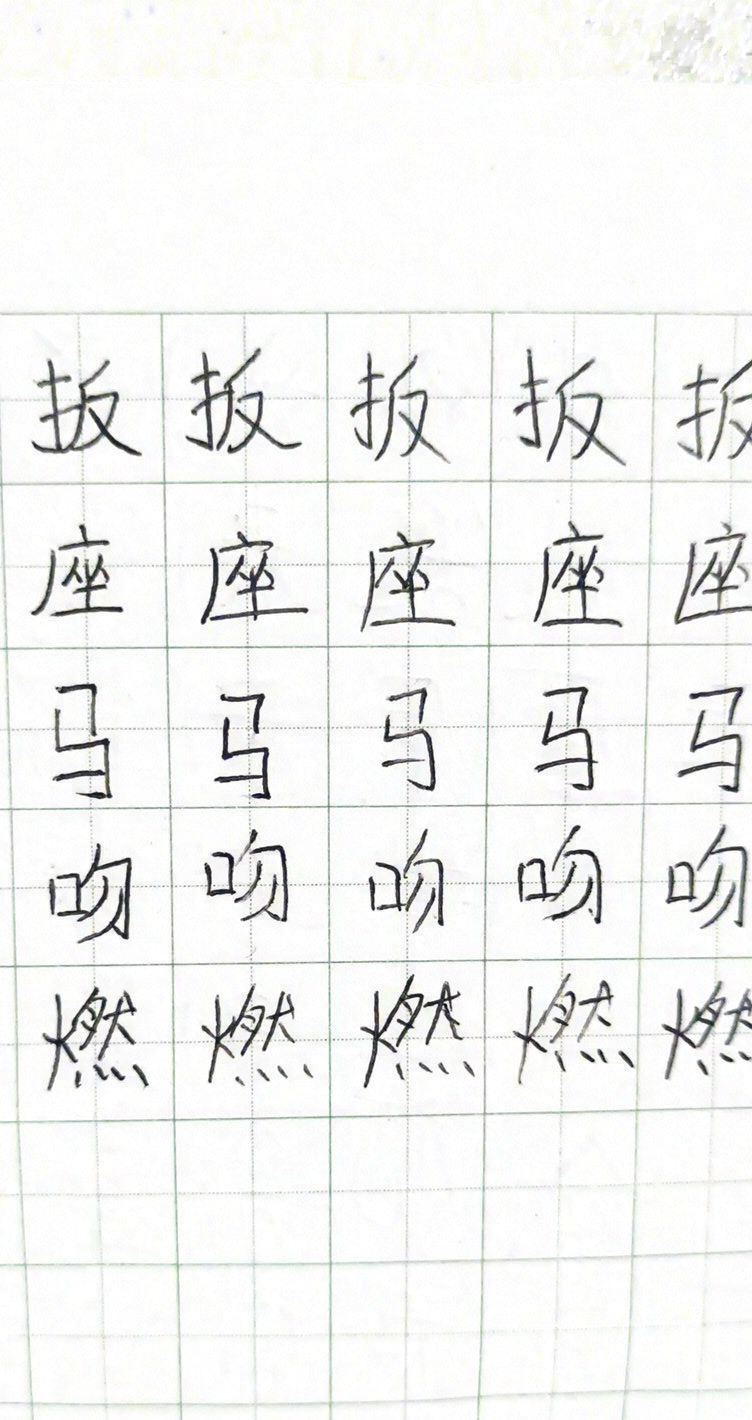 扳 扳 扳 扳 扳
座 座 座 座 座
马 马 马 马 马
吻 吻 吻 吻 吻
燃 燃 燃 燃 燃